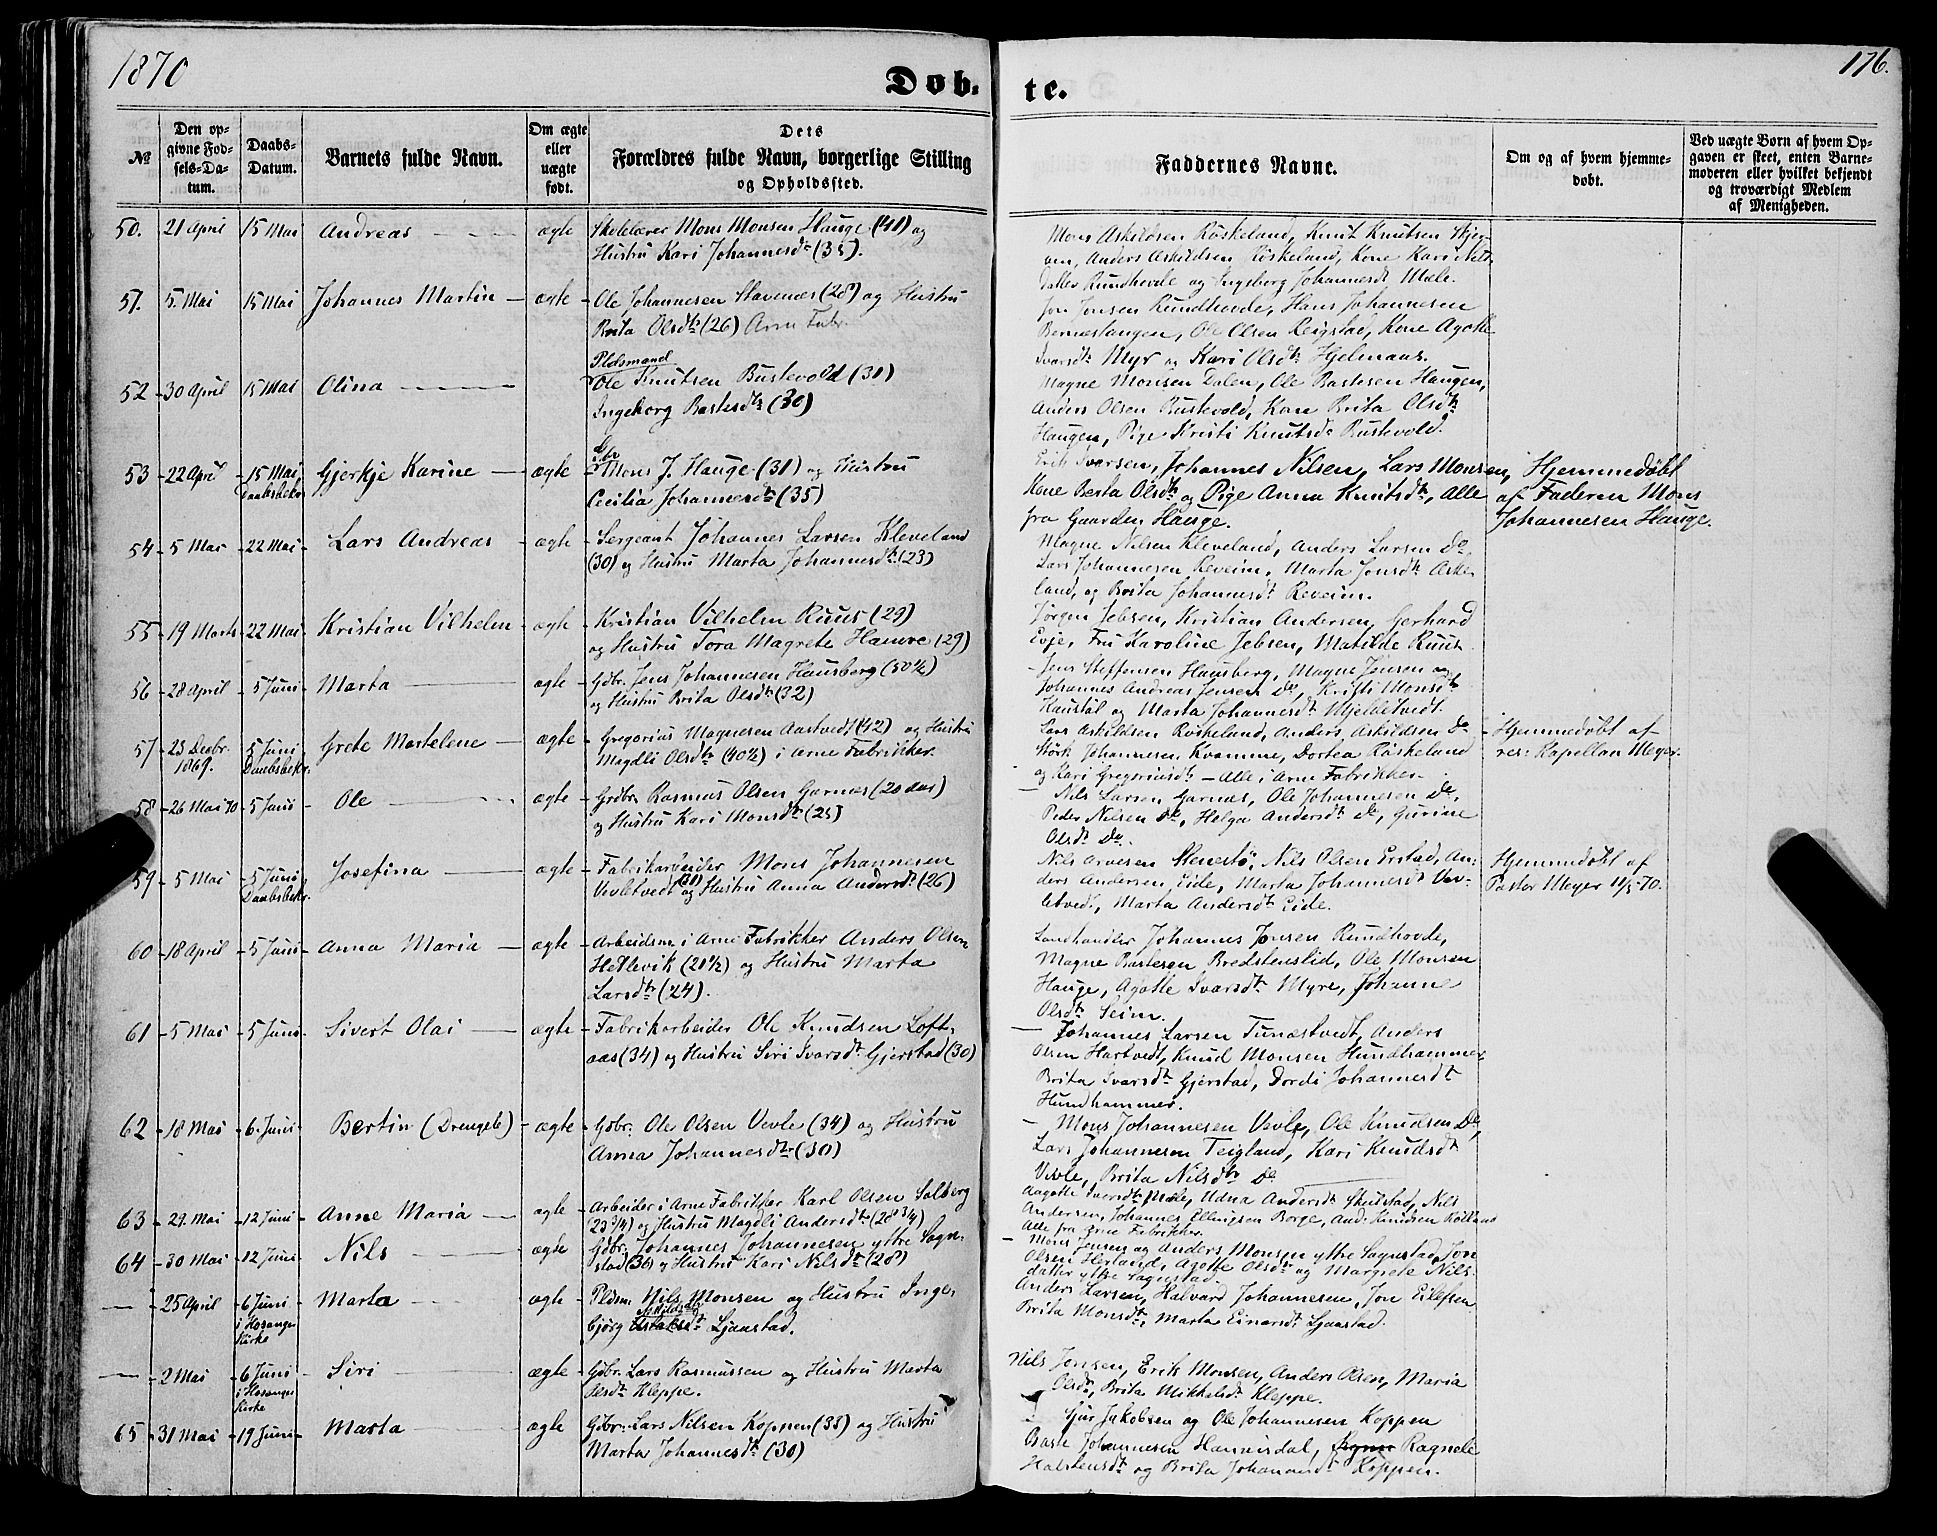 1870
176.
Døb-
te.
№
Den op-
givne Fød-
sels-Da-
tum.
Daabs-
Datum.
Barnets fulde Navn.
Om ægte
eller
uægte
født.
Dets
Forældres fulde Navn, borgerlige Stilling
og Opholdssted.
Faddernes Navne.
Om og af hvem hjemme-
døbt.
Ved uægte Børn af hvem Op-
gaven er skeet, enten Barne-
moderen eller hvilket bekjendt
og troværdigt Medlem
af Menigheden.
50. 21 April 15 Mai Andreas ægte
Skolelærer Mons Monsen Hauge (41) og
Hustru Kari Johannesdtr (35).
Mons Askildsen Røskeland, Knut Knutsen
Anders Askildsen Røskeland, Kone Kari Nils
datter Rundhovde og Ingeborg Johannesdt Mæle.
51. 5. Mai 15 Mai Johannes Martin ægte
Ole Johannesen Stavenæs (28) og Hustru
Brita Olsdtr (26) Arne Fabr.
Jon Jonsen Rundhovde, Hans Johannesen
Ole Olsen Reigstad, Kone Agotte
Ivarsdtr Myr og Kari Olsdtr Hjelmaas.
52 30 April 15 Mai Olina
Pladsmand
Ole Knutsen Bustevold (31)
Ingeborg Bastesdtr (30)
Magne Monsen Dalen, Ole Bastesen Haugen,
Anders Olsen Bustevold, Kone Brita Olsdtr
Haugen, Pige Kristi Knutsdr Bustevold.
53 22 April 15 Mai Daabsbekr Gjerkje Karine ægte
Gbr
Mons J. Hauge (31) og Hustru
Cecilia Johannesdtr (35)
Erik Ivarsen, Johannes Nilsen, Lars Monsen,
Kone Berta Olsdtr og Pige Anna Knutsdtr, Alle
fra Gaarden Hauge.
Hjemmedøbt
af Faderen Mons
Johannesen Hauge.
54 5 Mai 22 Mai Lars Andreas ægte
Sergeant Johannes Larsen Kleveland
(30) og Hustru Marta Johannesdtr (23)
Magne Nilsen Kleveland, Anders Larsen Do
Lars Johannesen Reveim, Marta Jonsdtr Aske
land, og Brita Johannesdt Reveim.
55 19 Marts 22 Mai Kristian Vilhelm ægte
Kristian Vilhelm Ruus (29)
og Hustru Tora Magrete Hamre (29)
Jørgen Jebsen, Kristian Andersen, Gerhard
Evje, Fru Karoline Jebsen, Matilde Ruus
56 28 April 5 Juni Marta ægte
Gdbr. Jens Johannesen Hausberg (50½)
og Hustru Brita Olsdtr (32)
Jens Steffensen Hausberg, Magne Jensen og
Johannes Andreas Jensen Do, Kristi Monsdtr
Haustøl og Marta Johannesdt Mjeldetvedt.
57 23 Decbr. 1869. 5 Juni Daabsbekr. Grete Martelene ægte
Gregorius Magnesen Aastvedt (42) og Hustru
Magdli Olsdtr (40½) i Arne Fabrikker.
Lars Askildsen Røskeland, Anders Askildsen Do
Størk Johannesen Kvamme, Dortea Røskeland
og Kari Gregoriusdt - Alle i Arne Fabrikker.
Hjemmedøbt af
res: Kapellan Meyer.
58 26 Mai 70 5 Juni Ole ægte
Grdbr. Rasmus Olsen Garnæs (20 aar)
og Hustru Kari Monsdtr (25)
Nils Larsen Garnæs, Ole Johannesen Do,
Peder Nilsen Do, Helga Andersdt Do, Gurine
Olsdt Do.
59 5 Mai 5 Juni Daabsbekr. Josefina ægte
Fabrikarbeider Mons Johannesen
Vevletvedt (31) og Hustru Anna Andersdt (26)
Nils Arvesen Stenestø, Nils Olsen Erstad, An-
ders Andersen Eide, Marta Johannesdt Vev-
letvedt, Marta Andersdt Eide.
Hjemmedøbt af
Pastor Meyer 11/5 70.
60 18 April 5 Juni Anna Maria ægte
Arbeidsm i Arne Fabrikker Anders Olsen
Hetlevik (21½) og Hustru Marta
Larsdtr (24).
Landhandler Johannes Jonsen Rundhovde,
Magne Bastesen Bredstenslid, Ole Monsen
Hauge, Agotte Ivarsdt Myre, Johanne
Olsdtr Seim.
61 5 Mai 5 Juni Sivert Olai ægte
Fabrikarbeider Ole Knudsen Loft-
aas (34) og Hustru Siri Ivarsdt Gjerstad (30)
Johannes Larsen Tunæstvedt, Anders
Olsen Hartvedt, Knud Monsen Hundhammer
Brita Ivarsdtr Gjerstad, Dordi Johannesdt
Hundhammer.
62 18 Mai 6. Juni Bertin (Drengeb) ægte
Gdbr. Ole Olsen Vevle (34) og Hustru
Anna Johannesdtr (30)
Mons Johannesen Vevle, Ole Knudsen Do,
Lars Johannesen Teigland, Kari Knudsdt
Vevle, Brita Nilsdtr Do
63 29. Mai 12 Juni Anne Maria ægte
Arbeider i Arne Fabrikker Karl Olsen Solberg
(23 3/4) og Hustru Magdli Andersdtr (28 3/4)
Aagotte Ivarsdtr Mæle, Udna Andersdt Skulstad, Nils
Andersen, Johannes Ellingsen Borge, And. Knudsen Rolland
Alle fra Arne Fabrikker.
64 30 Mai 12 Juni Nils ægte
Gdbr. Johannes Johannesen yttre Sagn-
stad (36) og Hustru Kari Nilsdtr (28)
Mons Jensen og Anders Monsen yttre Sagnstad, Jon
Olsen Herland, Agotte Olsdtr og Margrete Nils-
datter yttre Sagnstad.
25 April 6 Juni i Hosanger Kirke Marta ægte
Pldsm. Nils Monsen og Hustru Inge-
bjørg Ljaastad.
Anders Larsen, Halvard Johannesen, Jon Eilefsen
Brita Monsdtr, Marta Einarsdt Ljaastad.
2 Mai 6 Juni i Hosanger Kirke Siri ægte
Gdbr. Lars Rasmussen og Hustru Marta
Olsdtr Kleppe.
Nils Jonsen, Erik Monsen, Anders Olsen, Maria
Olsdtr, Brita Mikkelsdt Kleppe.
65 31 Mai 19 Juni Marta ægte
Gdbr. Lars Nilsen Koppen (35) og Hustru
Marta Johannesdtr (30)
Sjur Jakobsen og Ole Johannesen Koppen
Baste Johannesen Hannisdal, Ragnele
Halstensdt og Brita Johannesdt Koppen.